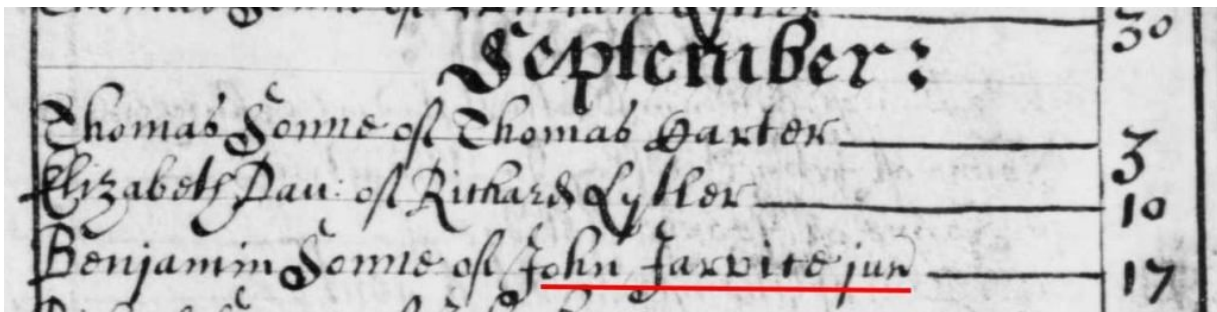 Thomas Sonne of 30
September:
Thomas Sonne of Thomas 3
Elizabeth Dau: of Richard Lytler 10
Benjamin Sonne of John Jarvice jun 17